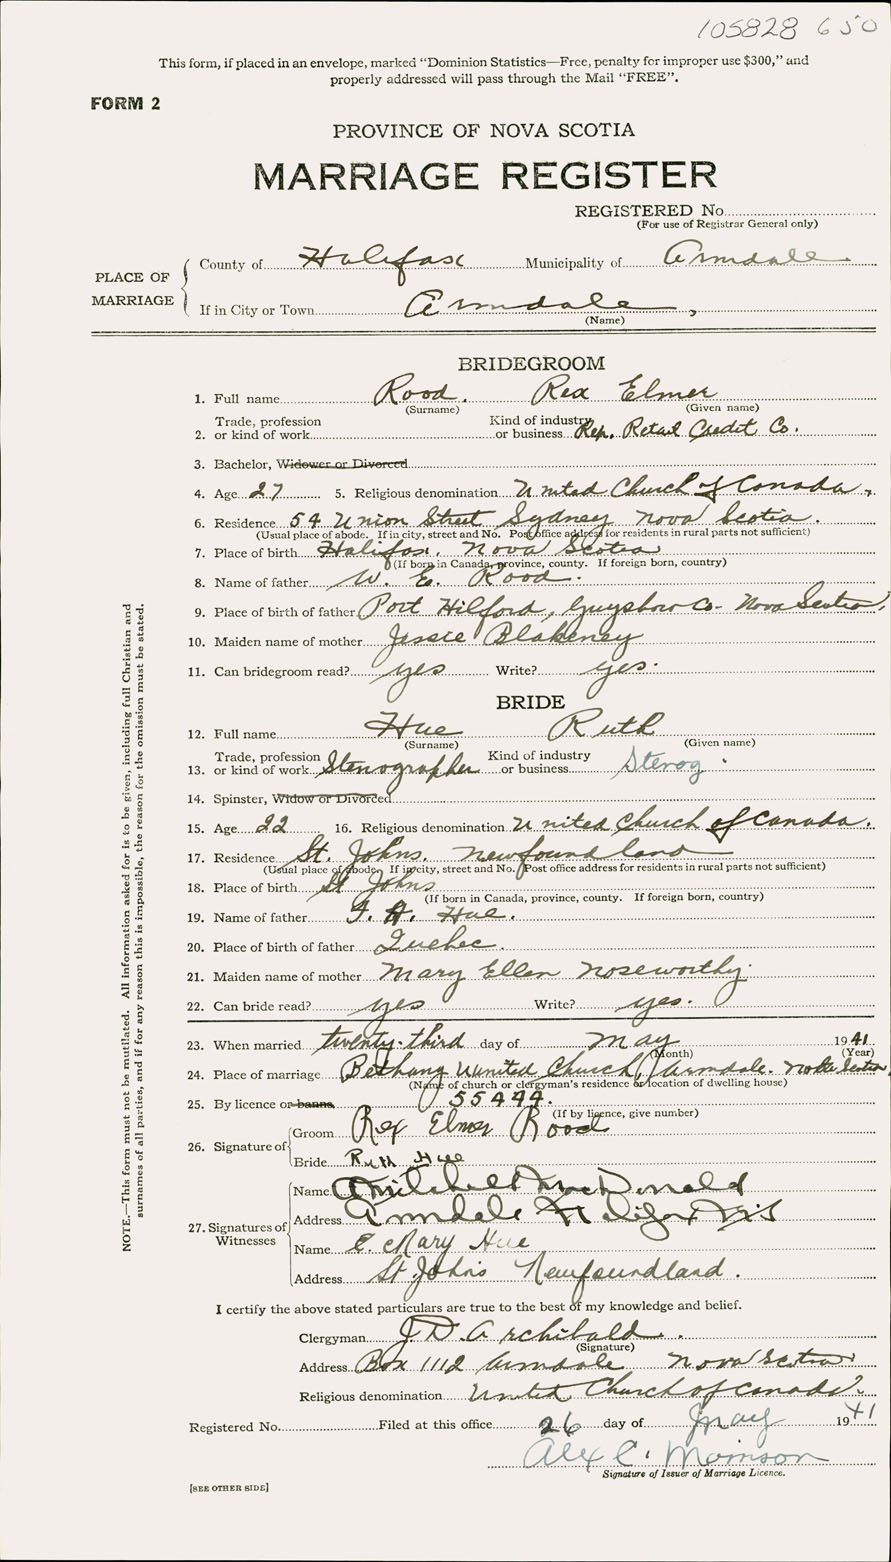 105828 650
This form, if placed in an envelope, marked “Dominion Statistics—Free, penalty for improper use $300,” and
properly addressed will pass through the Mail “FREE”.
FORM 2
PROVINCE OF NOVA SCOTIA
MARRIAGE REGISTER
REGISTERED No.
(For use of Registrar General only)
PLACE OF MARRIAGE
County of Halifax Municipality of Armdale
If in City or Town Armdale,
(Name)
BRIDEGROOM
1. Full name Rood. Rex Elmer
(Surname) (Given name)
2. Trade, profession or kind of work Kind of industry or business Rep. Retail Credit Co.
3. Bachelor, Widower or Divorced
4. Age 27 5. Religious denomination United Church of Canada,
6. Residence 54 Union Street Sydney Nova Scotia.
(Usual place of abode. If in city, street and No. Post office address for residents in rural parts not sufficient)
7. Place of birth Halifax, Nova Scotia
(If born in Canada, province, county. If foreign born, country)
8. Name of father W. E. Rood.
9. Place of birth of father Port Hilford, Guysboro Co- Nova Scotia,
10. Maiden name of mother Jessie Blakeney
11. Can bridegroom read? yes Write? yes.
BRIDE
12. Full name Hue Ruth
(Surname) (Given name)
13. Trade, profession or kind of work Stenographer Kind of industry or business Stenog.
14. Spinster, Widow or Divorced
15. Age 22 16. Religious denomination United Church of Canada.
17. Residence St. Johns. Newfoundland
(Usual place of abode. If in city, street and No. Post office address for residents in rural parts not sufficient)
18. Place of birth St Johns
(If born in Canada, province, county. If foreign born, country)
19. Name of father H. Hue.
20. Place of birth of father Quebec.
21. Maiden name of mother Mary Ellen Noseworthy
22. Can bride read? yes Write? yes.
23. When married twenty-third day of May 1941
(Month) (Year)
24. Place of marriage Bethany United Church, Armdale. Nova Scotia,
(Name of church or clergyman's residence or location of dwelling house)
25. By licence or banns 55444.
(If by licence, give number)
26. Signature of
Groom Rex Elmer Rood
Bride Ruth Hue
27. Signatures of Witnesses
Name Mitchell MacDonald
Address Armdale Halifax NS
Name E. Mary Hue
Address St. John's Newfoundland.
I certify the above stated particulars are true to the best of my knowledge and belief.
Clergyman J. D. Archibald.
(Signature)
Address Box 1112 Armdale Nova Scotia
Religious denomination United Church of Canada.
Registered No. Filed at this office 26 day of May 1941
Alex C.
Signature of Issuer of Marriage Licence.
[SEE OTHER SIDE]
NOTE.—This form must not be mutilated. All information asked for is to be given, including full Christian and
surnames of all parties, and if for any reason this is impossible, the reason for the omission must be stated.